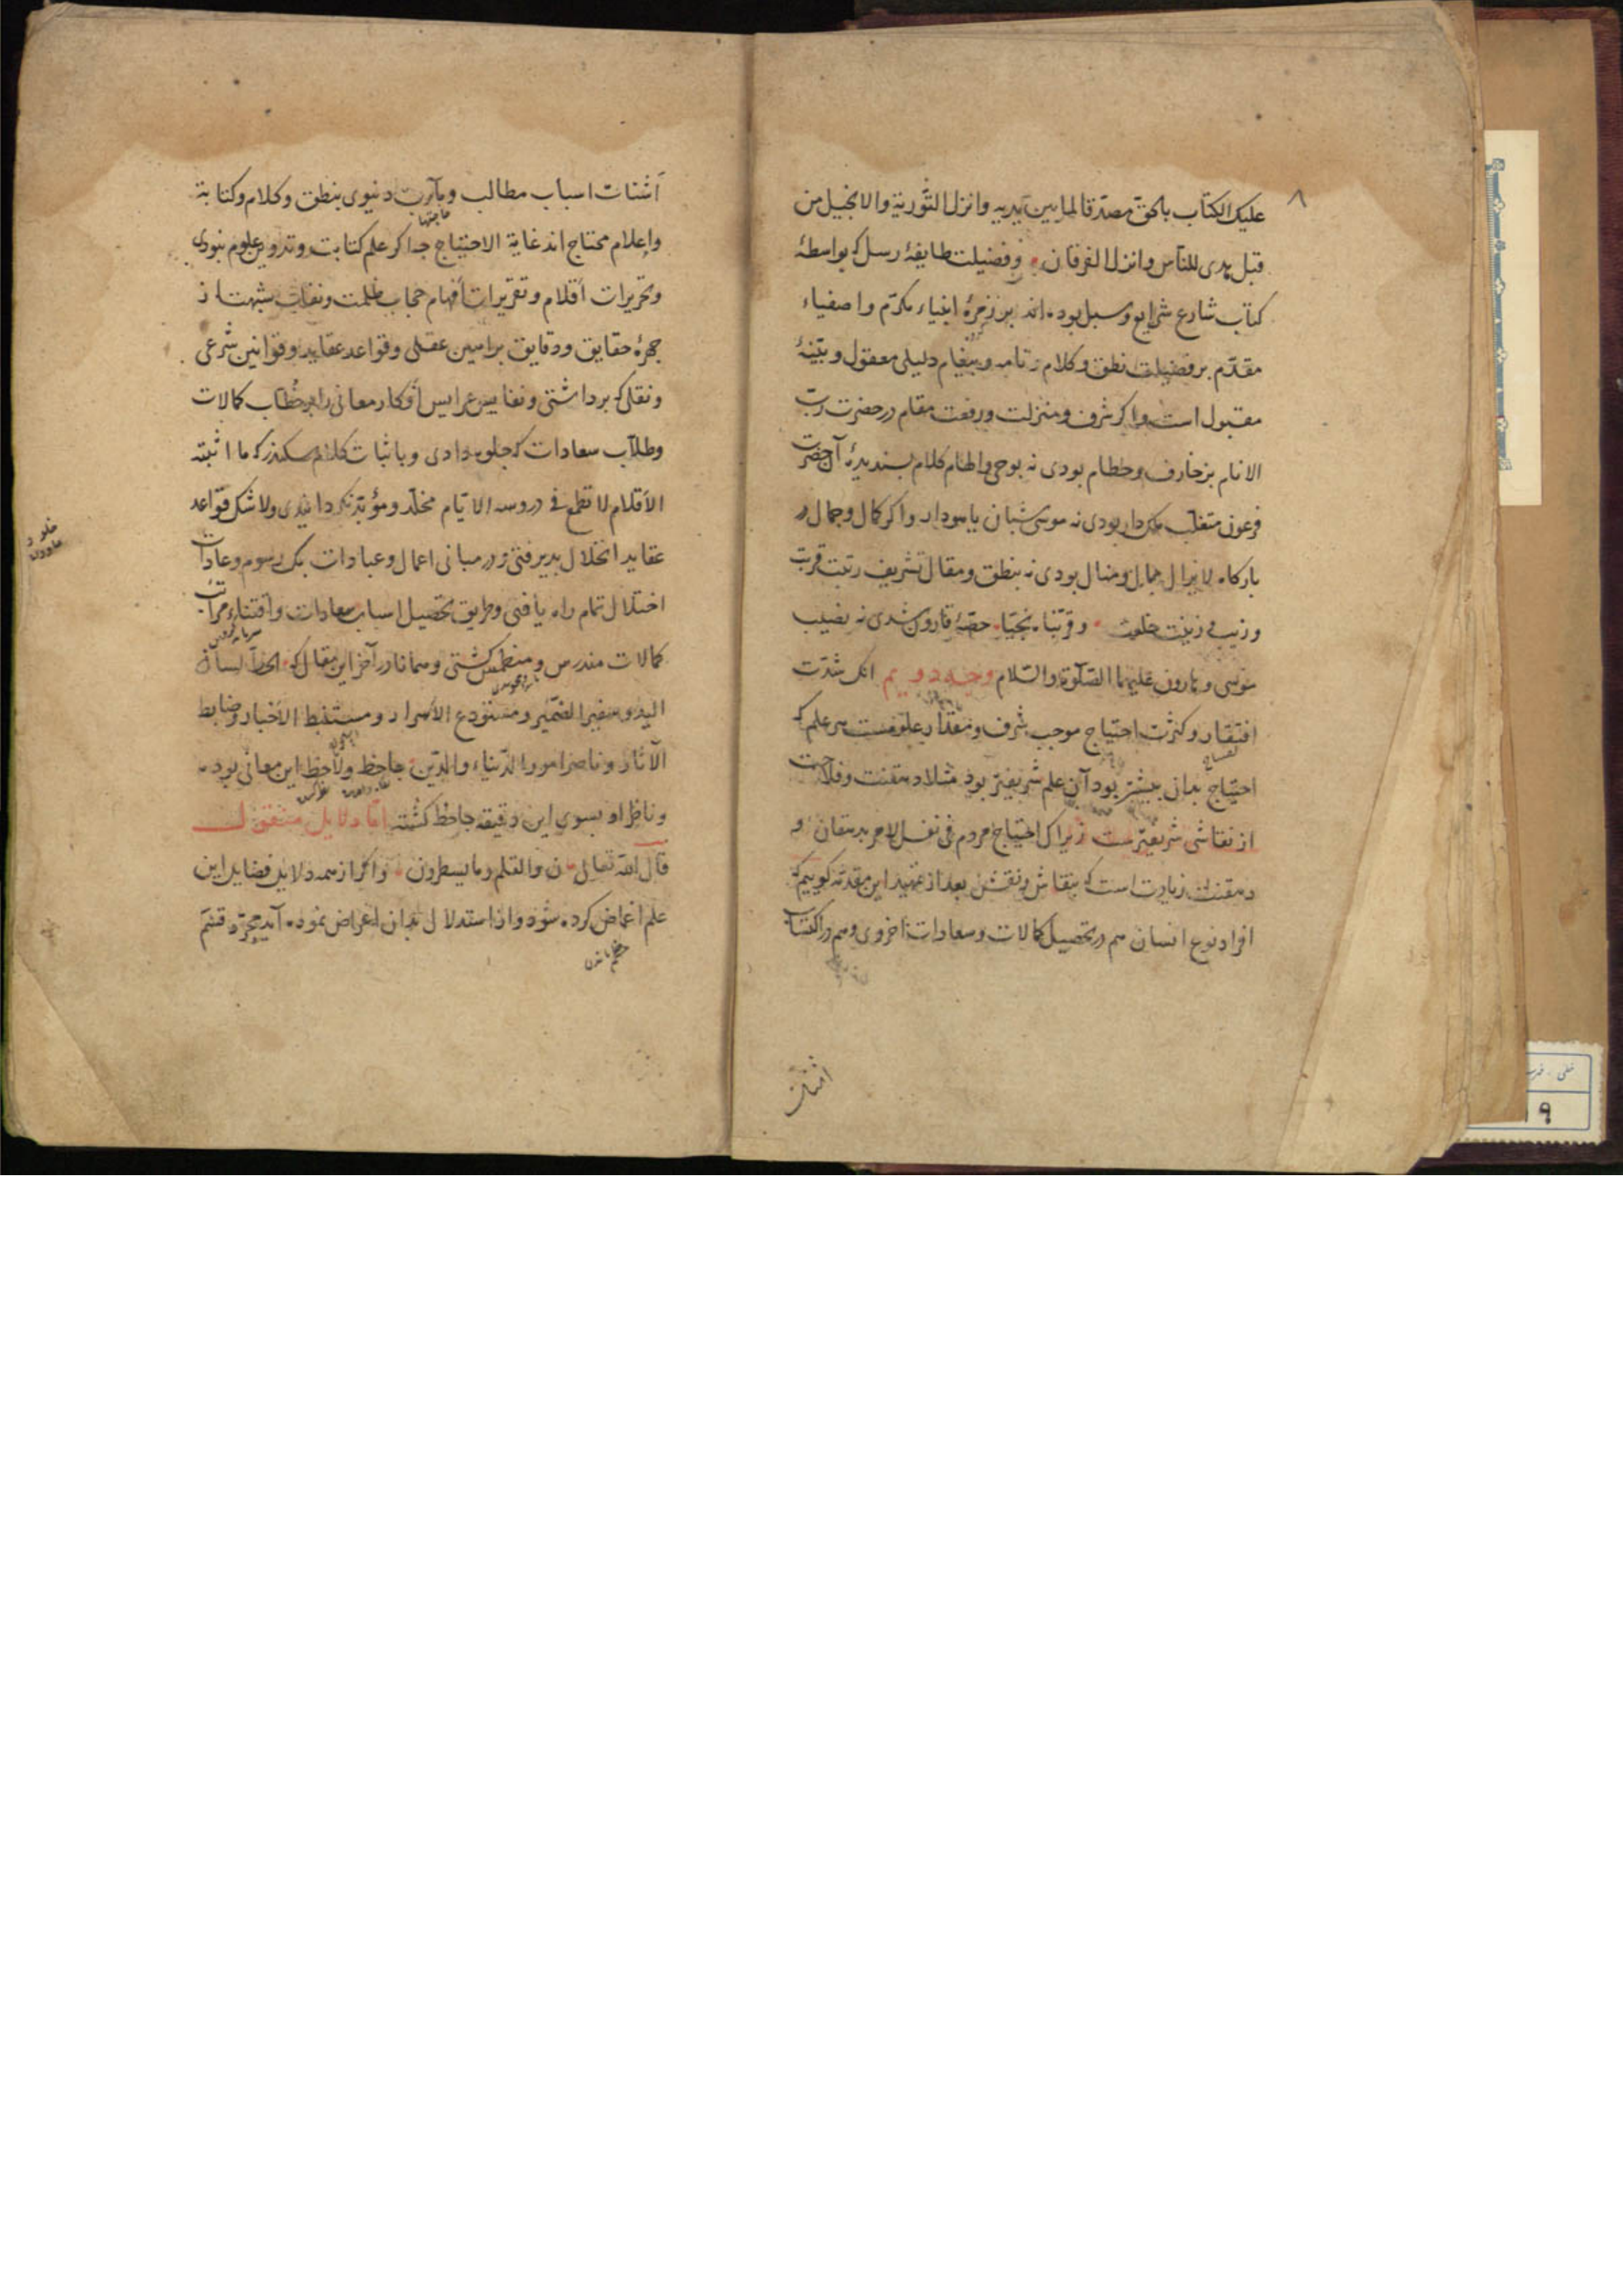 ۸
علیک الکتاب بالحق مصدقا لما بین یدیه وانزل التوریة والانجیل من
قبل هدی للناس وانزل الفرقان وفضیلت طایفهٔ رسل که بواسطهٔ
کتاب شارع شرایع وسبل بوده اند بر زمرهٔ انبیاء مکرّم واصفیاء
مقدّم بر فضیلت نطق وکلام ونامه وپیغام دلیلی معقول وبیّنهٔ
مقبول است واکر شرف ومنزلت ورفعت مقام در حضرت ربّ
الانام بزخارف وحطام بودی نه بوحی والهام وکلام پسندیدهٔ آن حضرت
فرعون متغلّب ملک دار بودی نه موسی شبان یا سودار واکر کمال وجمال در
بارکاه لایزال بمال ومنال بودی نه بنطق ومقال تشریف رتبت قربت
وزیب وزینت خلوت وقرّبناه نجیّا حصّهٔ قارون شدی نه نصیب
موسی وهارون علیهما الصّلوة والسّلام وجه دویم انک شدّت
افتقار وکثرت احتیاج موجب شرف ومقدار علوّمست هر علم که
احتیاج بدانی بیشتر بود آن علم شریفتر بود مثلا دهقنت وفلاحت
از نقاشی شریفترست زیراک احتیاج مردم فی نفس الامر بدهقان و
دهقنت زیادت است که بنقاش ونقش بعد از تمهید این مقدّمه کوییم که
افراد نوع انسان هم در تحصیل کمالات وسعادات اخروی وهم در اکتساب
اشتات
اشتات اسباب مطالب ومآرب دنیوی بنطق وکلام وکتابة
حاجتها
واعلام محتاج اند غایة الاحتیاج چه اکر علم کتابت وتدوین علوم نبودی
وتحریرات اقلام وتقریرات افهام حجاب ظلمت ونقاب شبهت از
چهرهٔ حقایق ودقایق براهین عقلی وقواعد عقاید وقوانین شرعی
ونقلی که برداشتی ونفایس عرایس افکار معانی را بر خطّاب کمالات
وطلّاب سعادات که جلوه دادی وباثبات کلام سکندر که ما اثبته
الاقلام لا تطمع فی دروسه الایّام مخلّد ومؤبّد نکردانیدی ولا شک قواعد
عقاید انخلال پذیرفتی ودر مبانی اعمال وعبادات بک رسوم وعادات
اختلال تمام راه یافتی وطریق تحصیل اسباب سعادات واقتناء مراتب
کمالات مندرس ومنطمس کشتی وهمانا در آخر این مقال که الخطّ لسان
الید وسفیر الضّمیر ومستودع الاسرار ومستنبط الاخبار وضابط
الآثار وناصر امور الدّنیاء والدّین جاحظ ولاحظ این معانی بوده
وناظر او بسوی این دقیقه جاحظ کشته امّا دلایل منقول
قال الله تعالی ن والقلم وما یسطرون واکر از همه دلایل فضایل این
علم اغماض کرده شود واز استدلال بدان اعراض نموده آید مجرّد قسم
۱۹